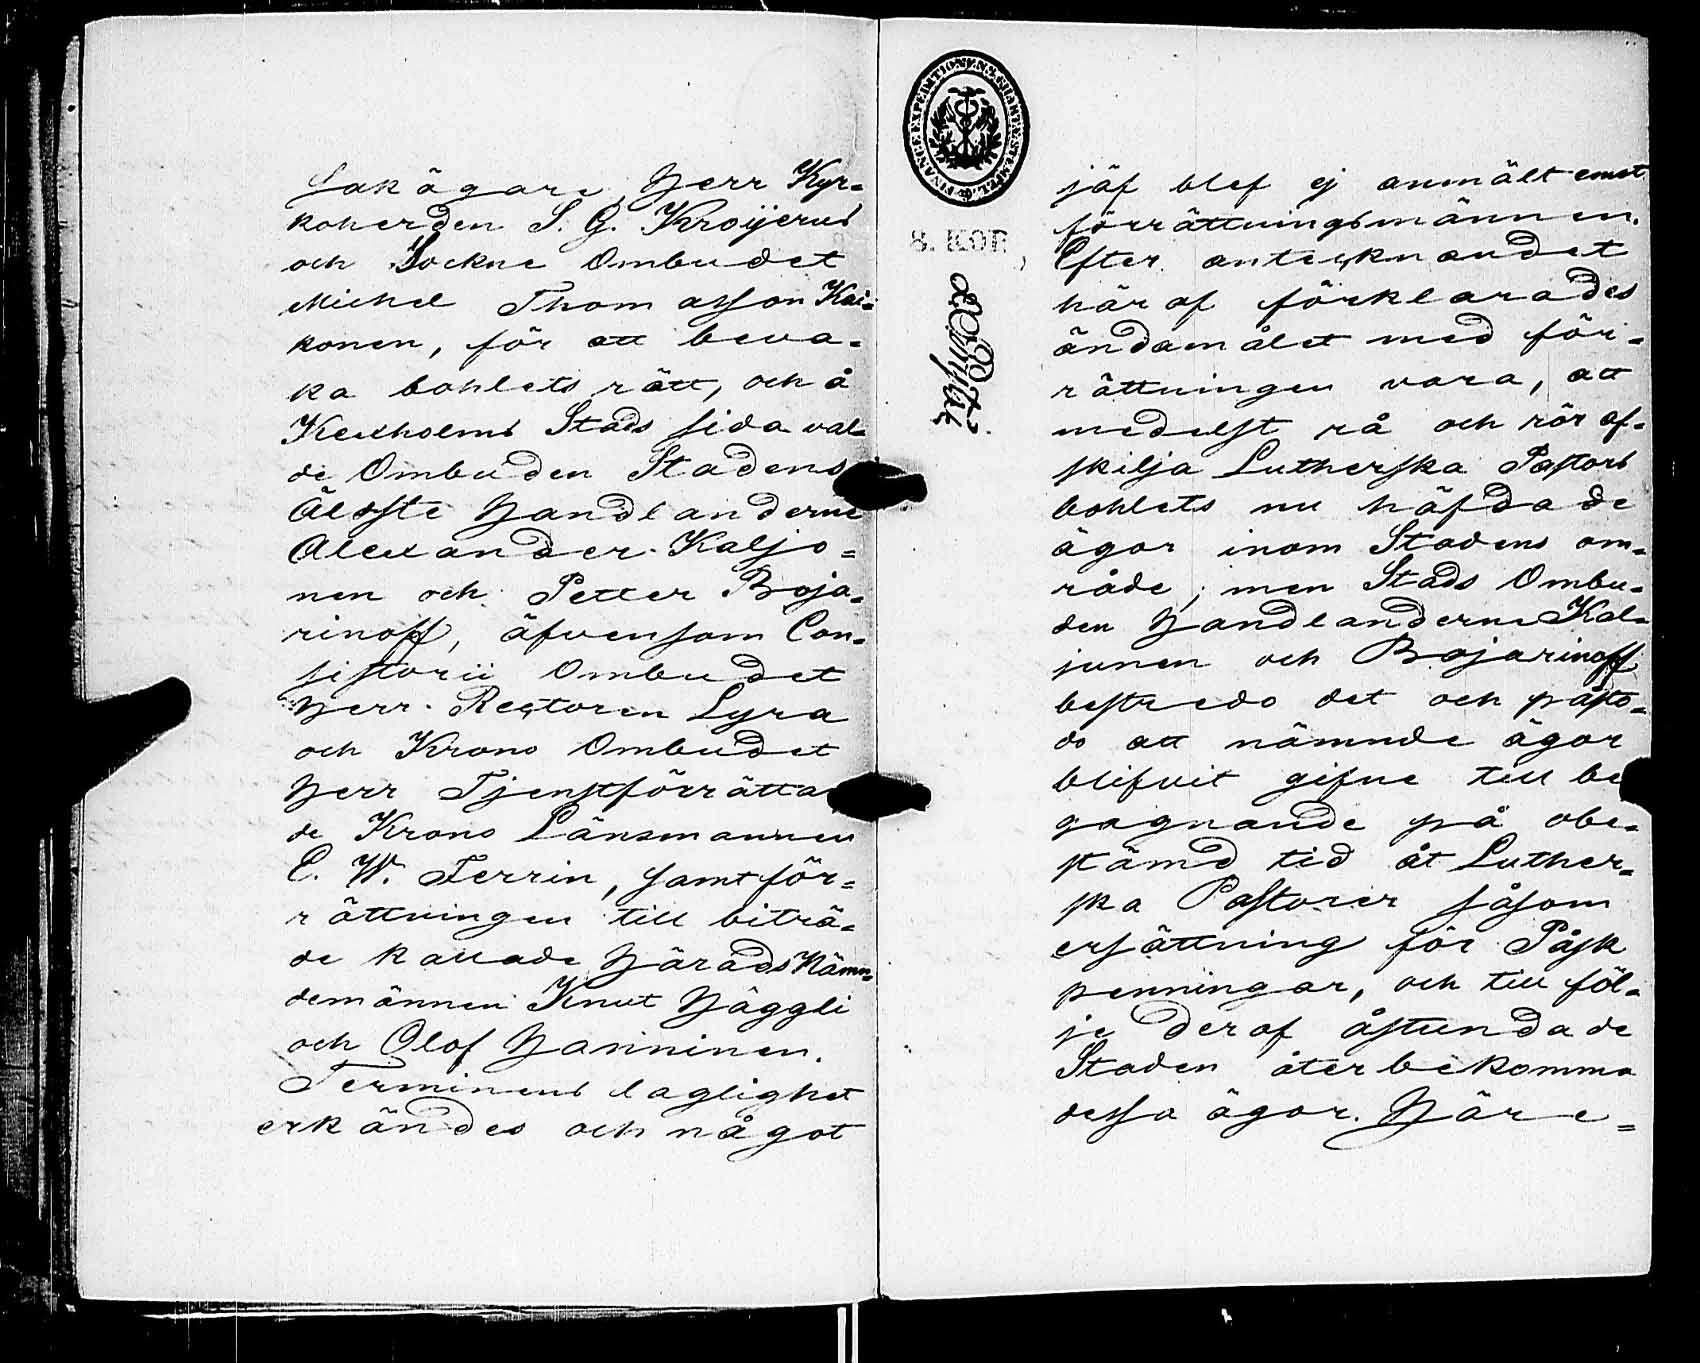 Sakägare, Herr Kyr=
koherden S. G. Kroijerus
och Sockne Ombudet
Michel Thomasson Kai=
konen, för att beva=
ka bohlets rätt, och å
Kexholms Stads sida val=
de Ombuden Stadens
Äldste Handlanderne
Alexander Kaljo=
nen och Petter Boja=
rinoff, äfvensom Con=
sistorii Ombudet
Herr Rectoren Lyra
och Krono Ombudet
Herr Tjenstförrätta
de Krono Länsmannen
E. W. Ferrin, samt för=
rättningen till biträ=
de kallade Härads Nämn=
demännen Knut Häggli
och Olof Hanninen.
Terminens laglighet
erkändes och något
FINANCE EXPEDITIONENS CHARTÆ STEMPEL
8. KOP
jäf blef ej anmält emot
förrättningsmännen.
Efter antecknandet
häraf förklarades
ändamålet med för=
rättningen vara, att
medelst rå och rör af=
skilja Lutherska Pastors
bohlets nu häfdade
ägor inom Stadens om=
råde; men Stads Ombu=
den Handlanderne Kal=
junen och Bojarinoff
bestredo det och påsto=
do att nämnde ägor
blifvit gifne till be
gagnande på obe=
stämd tid åt Luther=
ska Pastorer såsom
ersättning för Påsk
penningar, och till föl=
je deraf åstundade
Staden återbekomma
dessa ägor. Häre=